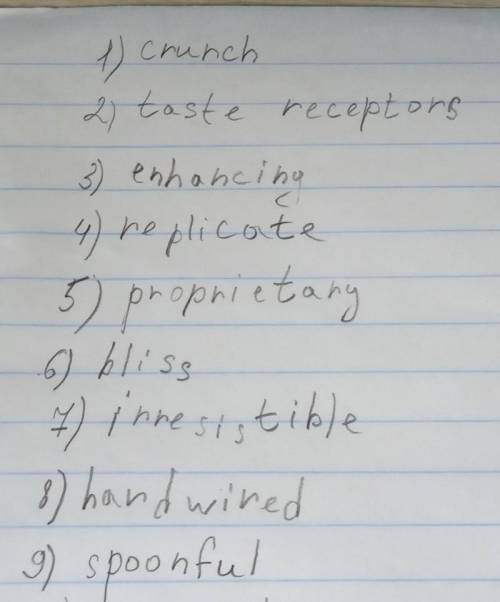 1) crunch
2) taste receptors
3) enhancing
4) replicate
5) proprietary
6) bliss
7) irresistible
8) hardwired
9) spoonful